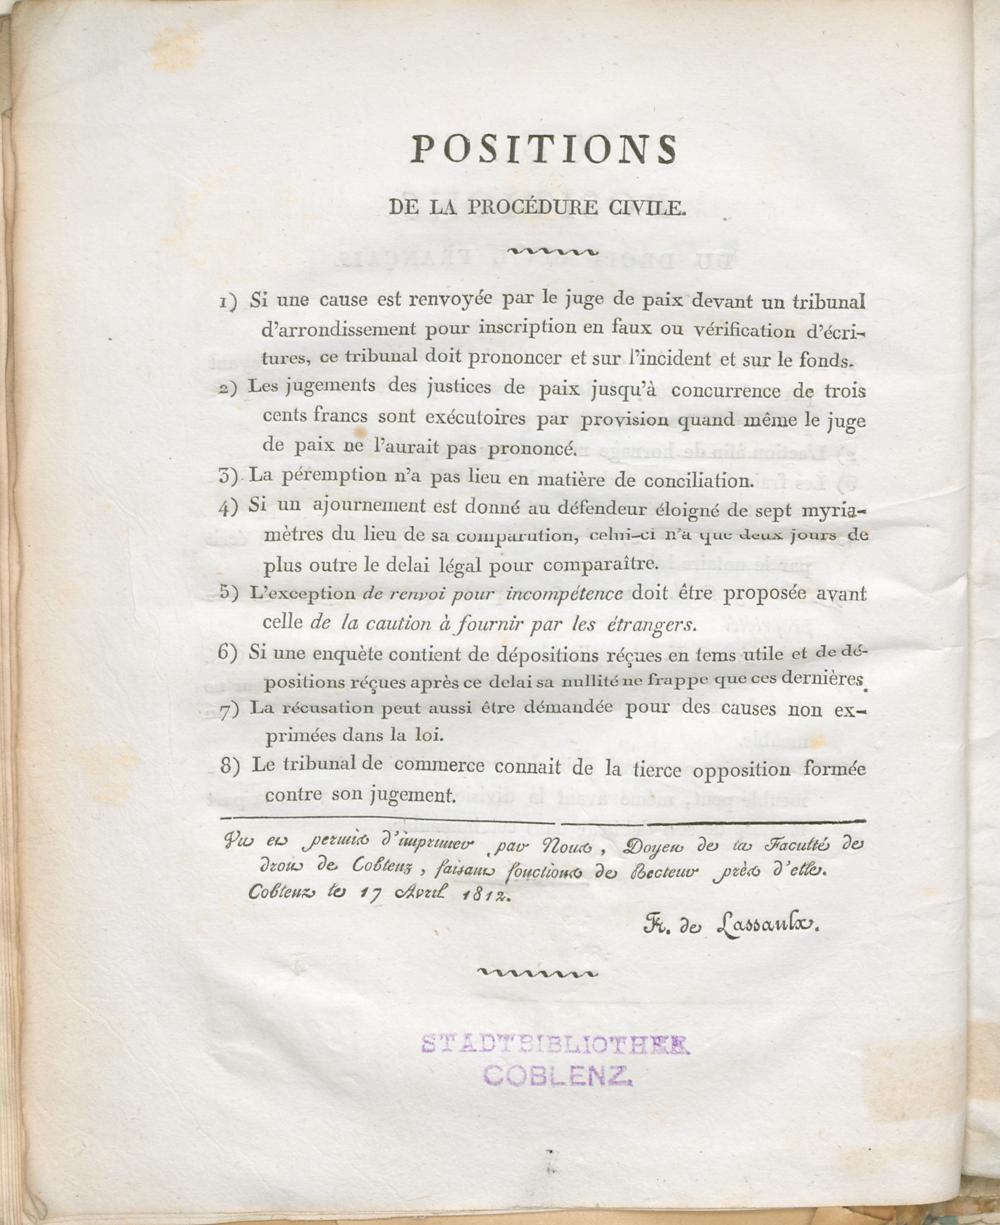 POSITIONS
DE LA PROCÉDURE CIVILE.
1) Si une cause est renvoyée par le juge de paix devant un tribunal
d'arrondissement pour inscription en faux ou vérification d'écri-
tures, ce tribunal doit prononcer et sur l'incident et sur le fonds.
2) Les jugements des justices de paix jusqu'à concurrence de trois
cents francs sont exécutoires par provision quand même le juge
de paix ne l'aurait pas prononcé.
3) La péremption n'a pas lieu en matière de conciliation.
4) Si un ajournement est donné au défendeur éloigné de sept myria-
mètres du lieu de sa comparution, celui-ci n'a que deux jours de
plus outre le delai légal pour comparaître.
5) L'exception de renvoi pour incompétence doit être proposée avant
celle de la caution à fournir par les étrangers.
6) Si une enquète contient de dépositions réçues en tems utile et de dé-
positions réçues après ce delai sa nullité ne frappe que ces dernières.
7) La récusation peut aussi être démandée pour des causes non ex-
primées dans la loi.
8) Le tribunal de commerce connait de la tierce opposition formée
contre son jugement.
Vu et permis d'imprimer par Nous, Doyen de la Faculté de
droit de Coblenz, faisant fonctions de Recteur près d'elle.
Coblenz le 17 Avril 1812.
Fr. de Lassaulx.
STADTBIBLIOTHEK
COBLENZ.